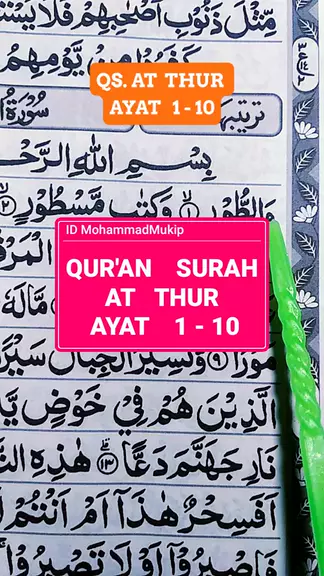 مِّثْلَ ذَنُوْبِ اَصْحٰبِهِمْ فَلَا
كَفَرُوْا مِنْ يَّوْمِهِمُ
QS. AT THUR
AYAT 1 - 10
سُوْرَةُ
بِسْمِ اللهِ
وَالطُّوْرِ ۙ ١ وَكِتٰبٍ مَّسْطُوْرٍ ۙ ٢
ID MohammadMukip
QUR'AN SURAH
AT THUR
AYAT 1 - 10
مَّا لَهٗ
مَوْرًا ۙ ٩ وَتَسِيْرُ الْجِبَالُ سَيْرًا
الَّذِيْنَ هُمْ فِيْ خَوْضٍ
نَارِ جَهَنَّمَ دَعًّا ١٣ هٰذِهِ
اَفَسِحْرٌ هٰذَآ اَمْ اَنْتُمْ
فَاصْبِرُوْٓا اَوْ لَا تَصْبِرُوْا